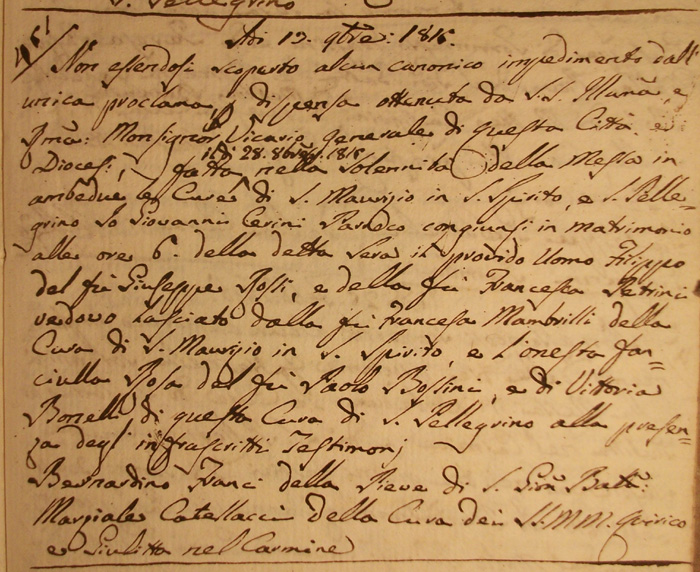 S. Pellegrino
451/ Adi 13. 9bre: 1815.
Non essendosi scoperto alcun canonico impedimento dall'
unica proclama, p dispensa ottenuta da S. S. Illma, e
Rma: Monsignor Vicario generale di questa Città e
il dì 28. 8bre 1815
Diocesi, fatta nella Solennità della Messa in
ambedue le Cure di S. Maurizio in S. Spirito, e S. Pelle=
grino Io Giovanni Cerini Parroco congiunsi in matrimonio
alle ore 6. della detta Sera il provido Uomo Filippo
del fù Giuseppe Rossi, e della fù Francesca Petrini
vedovo lasciato dalla fù Francesca Mambrilli della
Cura di S. Maurizio in S. Spirito, e l'onesta fan=
ciulla Rosa del fù Paolo Bossini, e di Vittoria
Borselli di questa Cura di S. Pellegrino alla presen=
za degl'infrascritti Testimonj
Bernardino Franci della Pieve di S. Gio Batta:
Marziale Catellacci della Cura dei SS. MM. Quirico
e Giulitta nel Carmine